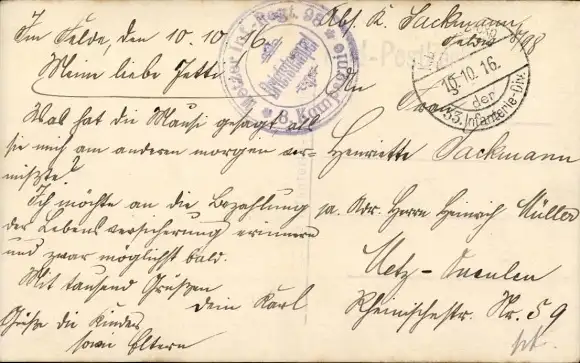 Im Felde, den 10.10.16
Meine liebe Jette
Was hat die Mausi gesagt als
sie mich am anderen morgen ver-
mißte?
Ich möchte an die Bezahlung
der Lebensversicherung erinnern
und zwar möglichst bald.
Mit tausend Grüßen
dein Karl
Grüße die Kinder
sowie Eltern
Metzer Inf. Regt. 98
Briefstempel
8. Kompagnie
Abs. K. Sackmann
8/98
10.10.16.
der
33. Infanterie-Div.
An
Frau
Henriette Sackmann
Adr. Herrn Heinrich Müller
Metz-Queulen
Rheinischestr. Nr. 59